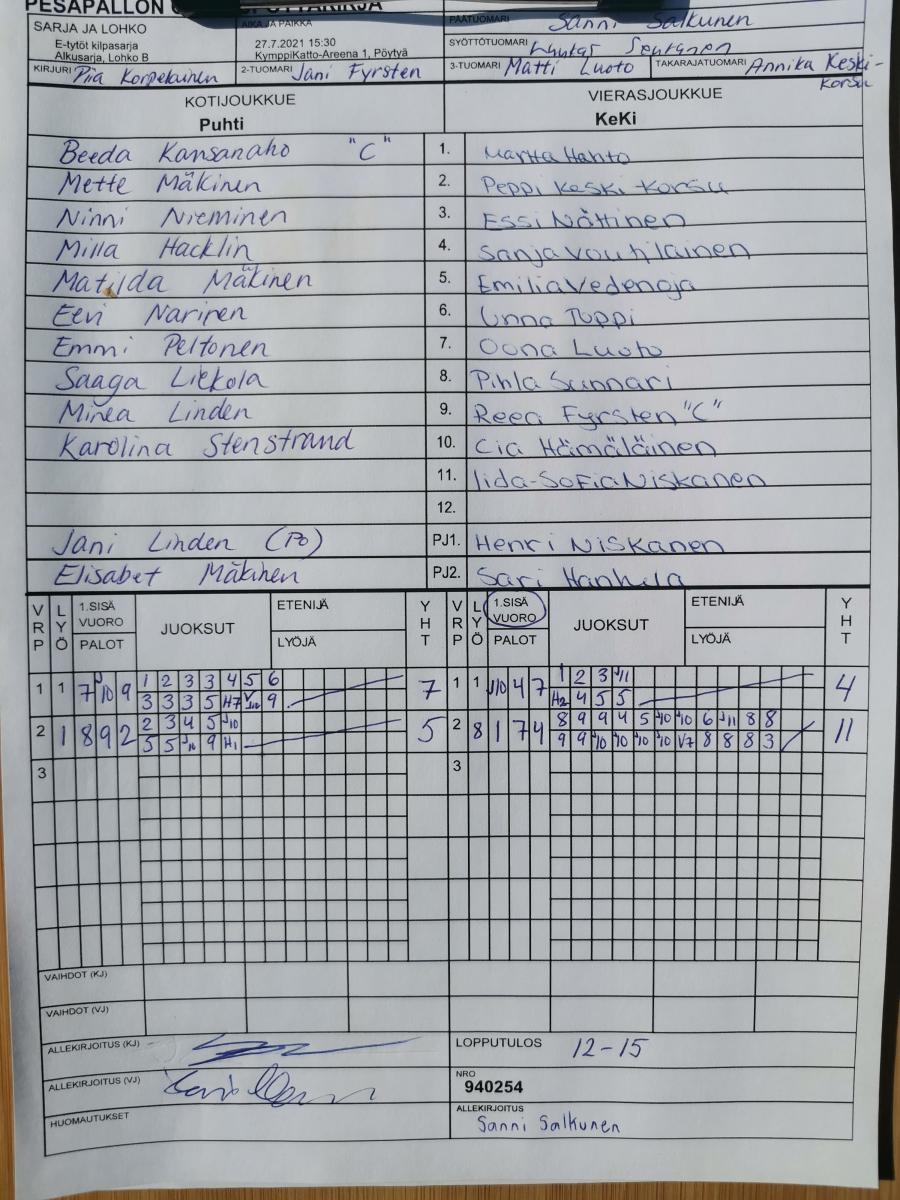 PESÄPALLON
SARJA JA LOHKO
E-tytöt kilpasarja
Alkusarja, Lohko B
AIKA JA PAIKKA
27.7.2021 15:30
KymppiKatto-Areena 1, Pöytyä
PÄÄTUOMARI Sanni Salkunen
SYÖTTÖTUOMARI
KIRJURI Pia Korpekuinen
2-TUOMARI Jani Fyrsten
3-TUOMARI Matti Luoto
TAKARAJATUOMARI Annika Keski-
Korsu
KOTIJOUKKUE
Puhti
VIERASJOUKKUE
KeKi
Beeda Kansanaho "C" 1. Martta Hahto
Mette Mäkinen 2. Peppi Keski-Korsu
Ninni Nieminen 3. Essi Nättinen
Milla Hacklin 4. Sanja Vouhilainen
Matilda Mäkinen 5. Emilia Vedenoja
Eevi Narinen 6. Unna Toppi
Emmi Peltonen 7. Oona Luoto
Saaga Liekola 8. Pihla Sunnari
Minea Linden 9. Reea Fyrsten "C"
Karolina Stenstrand 10. Cia Hämäläinen
11. Iida-Sofia Niskanen
12.
Jani Linden (Po) PJ1. Henri Niskanen
Elisabet Mäkinen PJ2. Sari Hanhela
VRP LYÖ 1.SISÄ VUORO PALOT JUOKSUT ETENIJÄ LYÖJÄ YHT VRP LYÖ 1.SISÄ VUORO PALOT JUOKSUT ETENIJÄ LYÖJÄ YHT
1 1 7 J10 9 1 2 3 3 4 5 6 7 1 1 J10 4 7 1 2 3 J11 4
3 3 3 5 H7 V J10 9 H2 4 5 5
2 1 8 9 2 2 3 4 5 J10 5 2 8 1 7 4 8 9 9 4 5 J10 J10 6 J11 8 8 11
5 5 J10 9 H1 9 9 J10 J10 J10 J10 V7 8 8 8 3
3 3
VAIHDOT (KJ)
VAIHDOT (VJ)
ALLEKIRJOITUS (KJ)
LOPPUTULOS 12-15
ALLEKIRJOITUS (VJ)
NRO
940254
HUOMAUTUKSET
ALLEKIRJOITUS
Sanni Salkunen